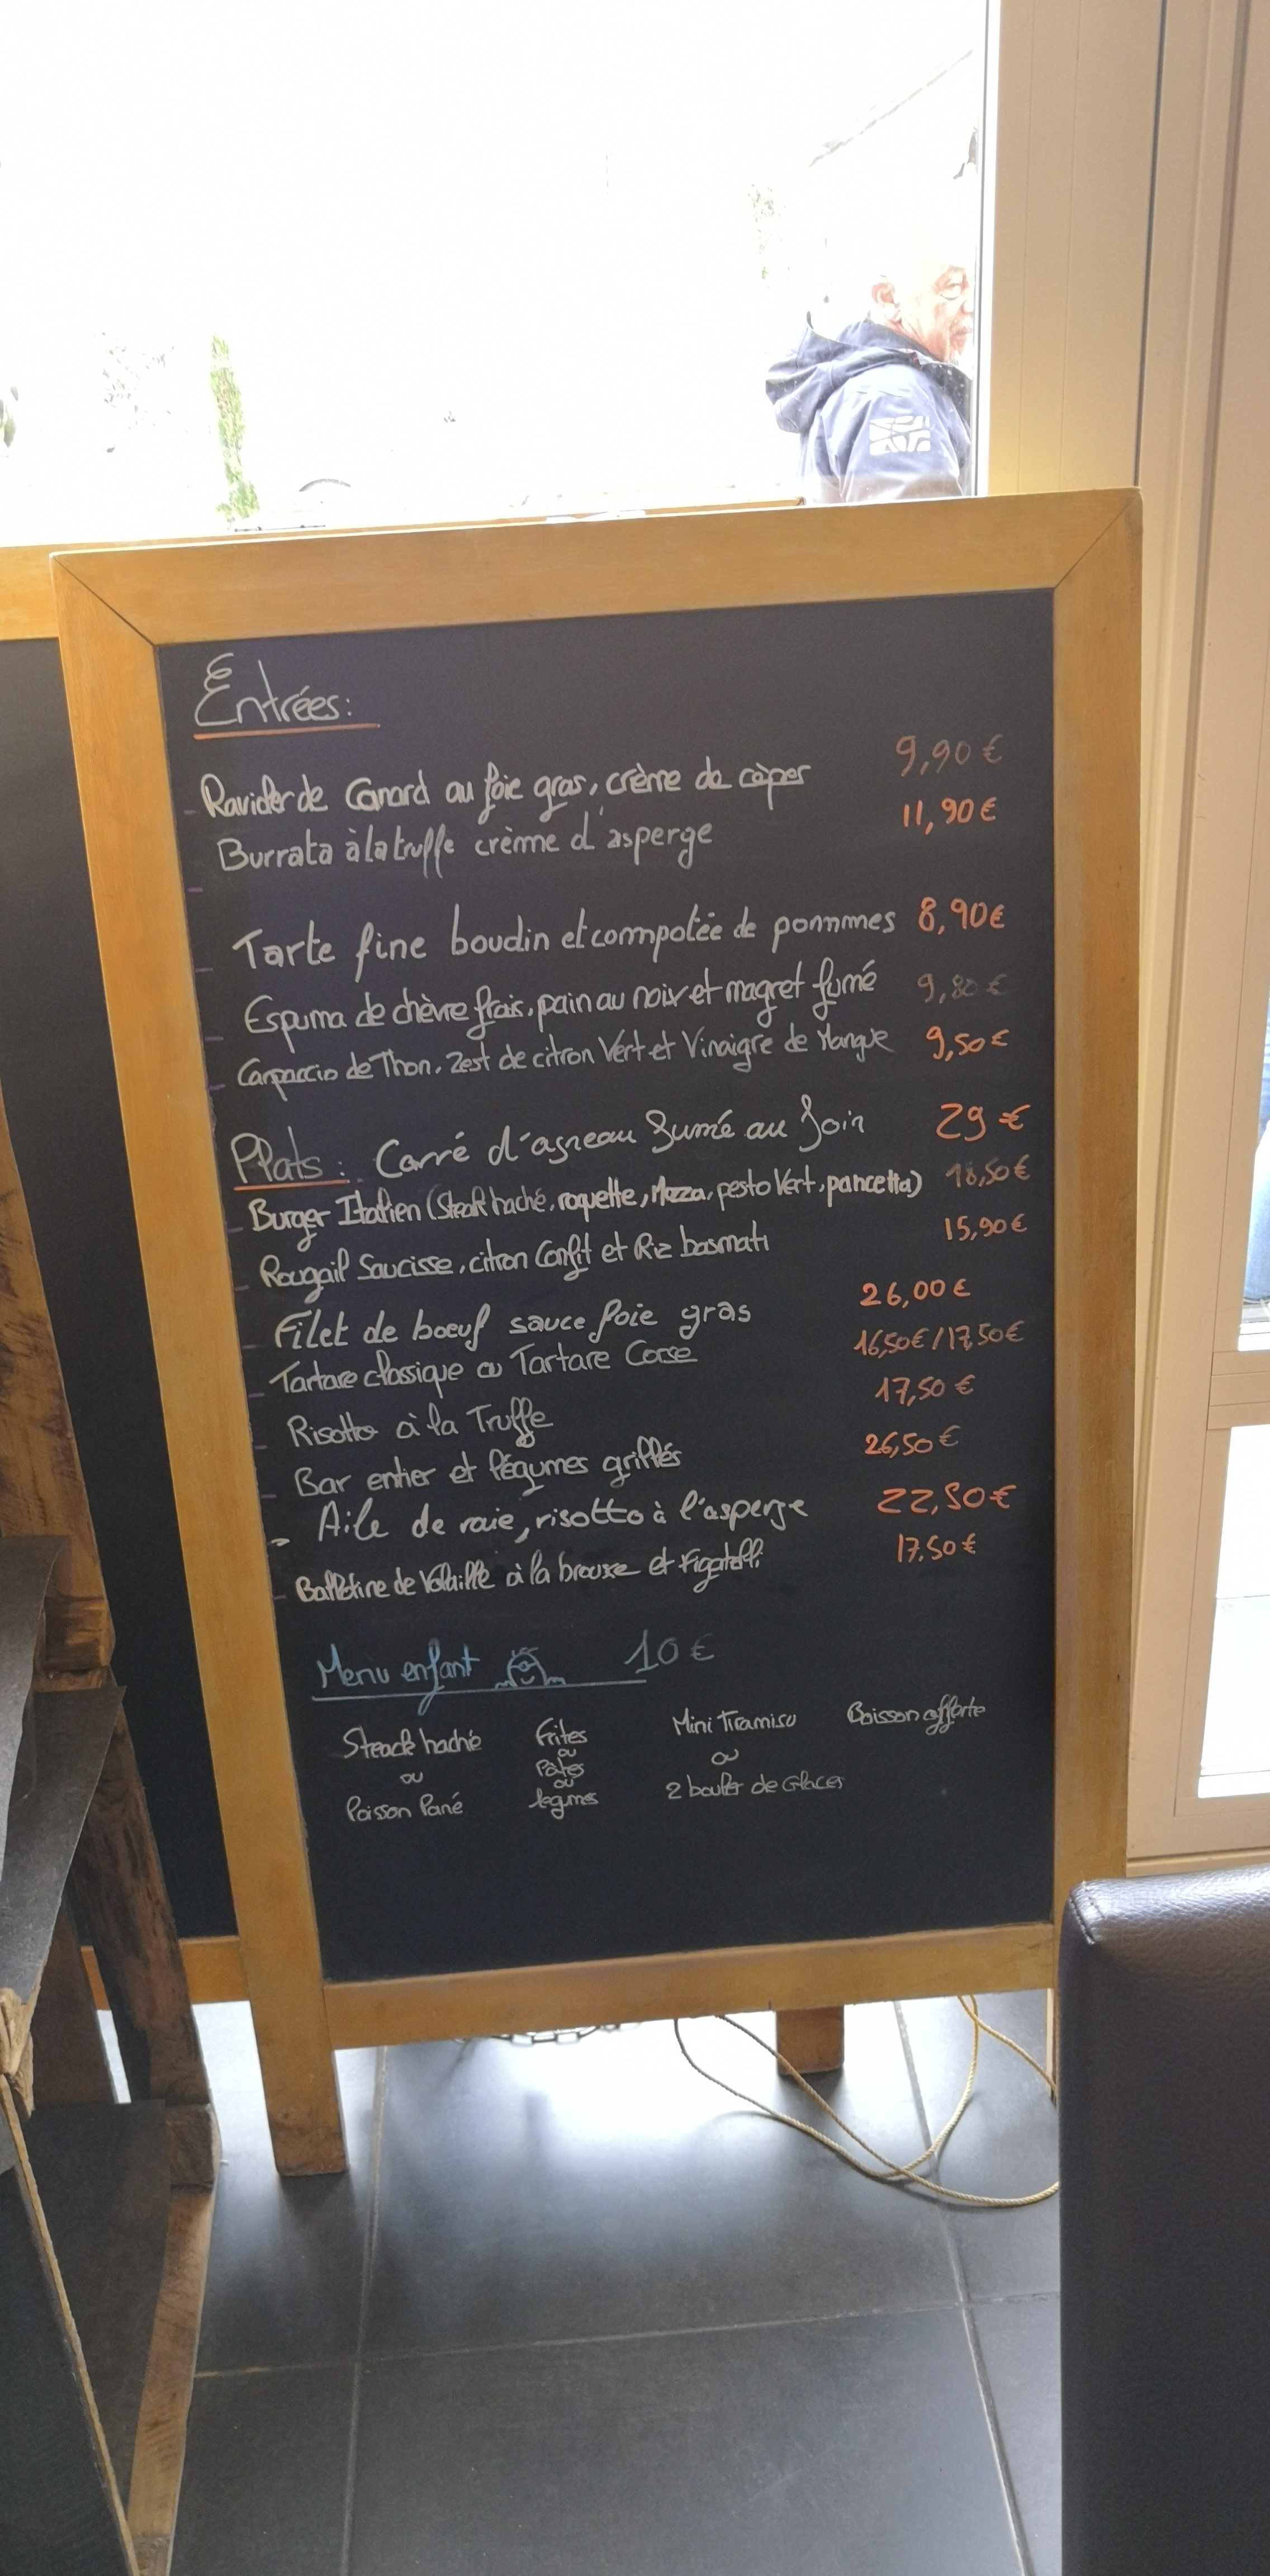 Entrées:
Ravioles de Canard au foie gras, crème de cèpes 9,90 €
Burrata à la truffe crème d'asperge 11,90 €
Tarte fine boudin et compotée de pommes 8,90€
Espuma de chèvre frais, pain au noix et magret fumé 9,80 €
Carpaccio de Thon, Zest de citron Vert et Vinaigre de Mangue 9,50€
Plats: Carré d'agneau fumé au foin 29 €
Burger Italien (Steak haché, roquette, Mozza, pesto Vert, pancetta) 18,50€
Rougail Saucisse, citron Confit et Riz basmati 15,90€
Filet de boeuf sauce foie gras 26,00 €
Tartare classique ou Tartare Corse 16,50€/17,50€
Risotto à la Truffe 17,50 €
Bar entier et légumes grillés 26,50€
- Aile de raie, risotto à l'asperge 22,50€
Ballotine de Volaille à la brousse et Figatelli 17,50€
Menu enfant 10 €
Steack haché Frites Mini Tiramisu Boisson offerte
ou ou ou
Poisson Pané Pâtes 2 boules de Glaces
ou
legmes